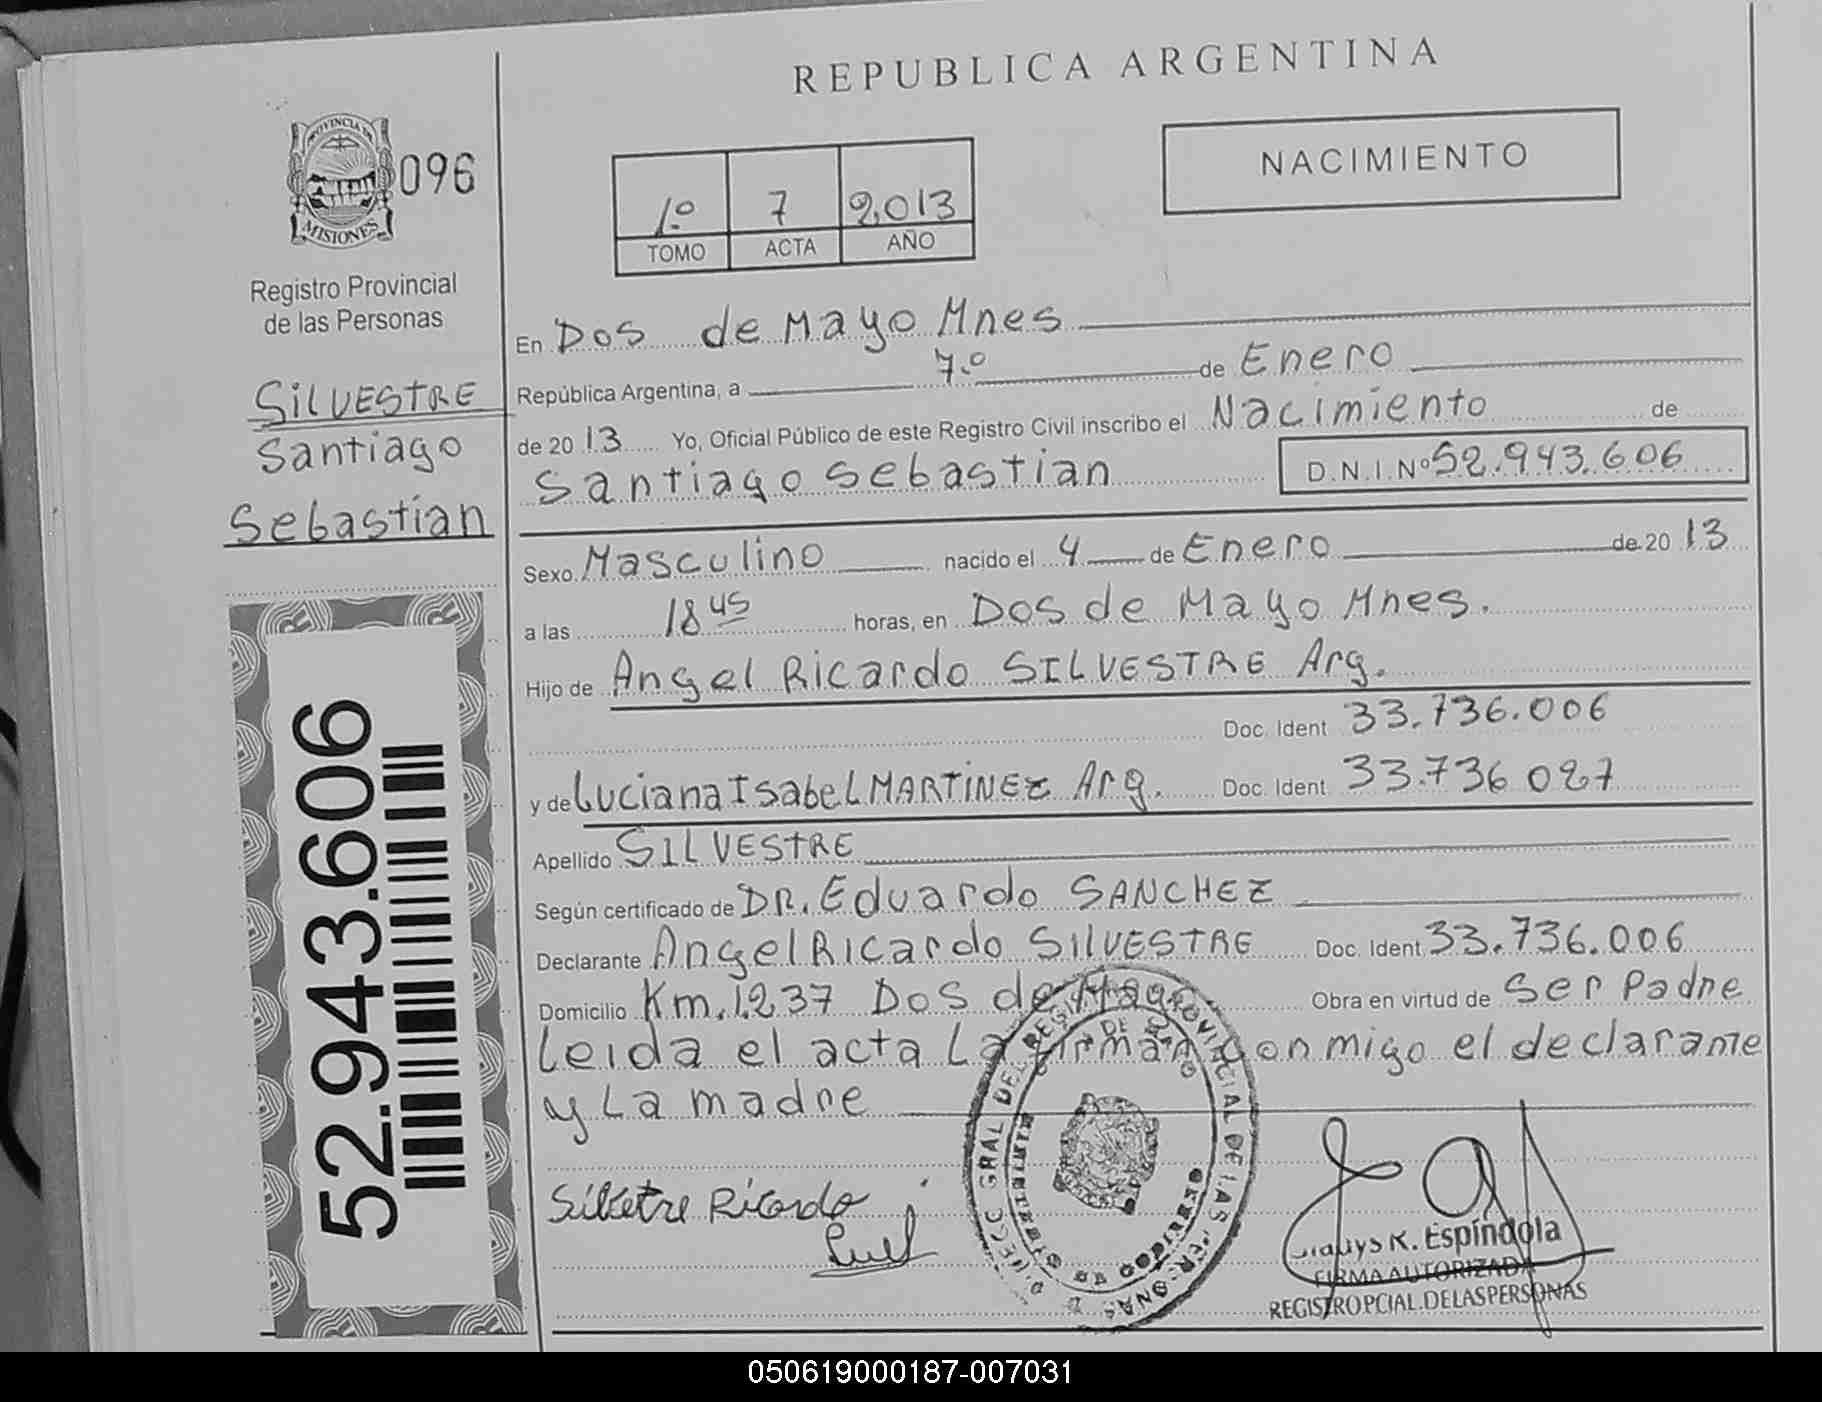 REPUBLICA ARGENTINA
PROVINCIA DE
MISIONES
096
Registro Provincial
de las Personas
SILVESTRE
Santiago
Sebastian
52.943.606
NACIMIENTO
1º 7 2.013
TOMO ACTA AÑO
En Dos de Mayo Mnes
República Argentina, a 7º de Enero
de 2013 Yo, Oficial Público de este Registro Civil inscribo el Nacimiento de
Santiago Sebastian D.N.I.Nº 52.943.606
Sexo Masculino nacido el 4 de Enero de 2013
a las 18 45 horas, en Dos de Mayo Mnes.
Hijo de Angel Ricardo SILVESTRE Arg.
Doc. Ident 33.736.006
y de Luciana Isabel MARTINEZ Arg. Doc. Ident 33.736 027
Apellido SILVESTRE
Según certificado de DR. Eduardo SANCHEZ
Declarante Angel Ricardo SILVESTRE Doc. Ident 33.736.006
Domicilio Km. 1.237 Dos de Mayo Obra en virtud de Ser Padre
Leida el acta La firman conmigo el declarante
y La madre
Ricardo
GRAL DEL REGISTRO PROVINCIAL DE LAS PERSONAS
Gladys R. Espíndola
FIRMA AUTORIZADA
REGISTRO PCIAL. DE LAS PERSONAS
050619000187-007031